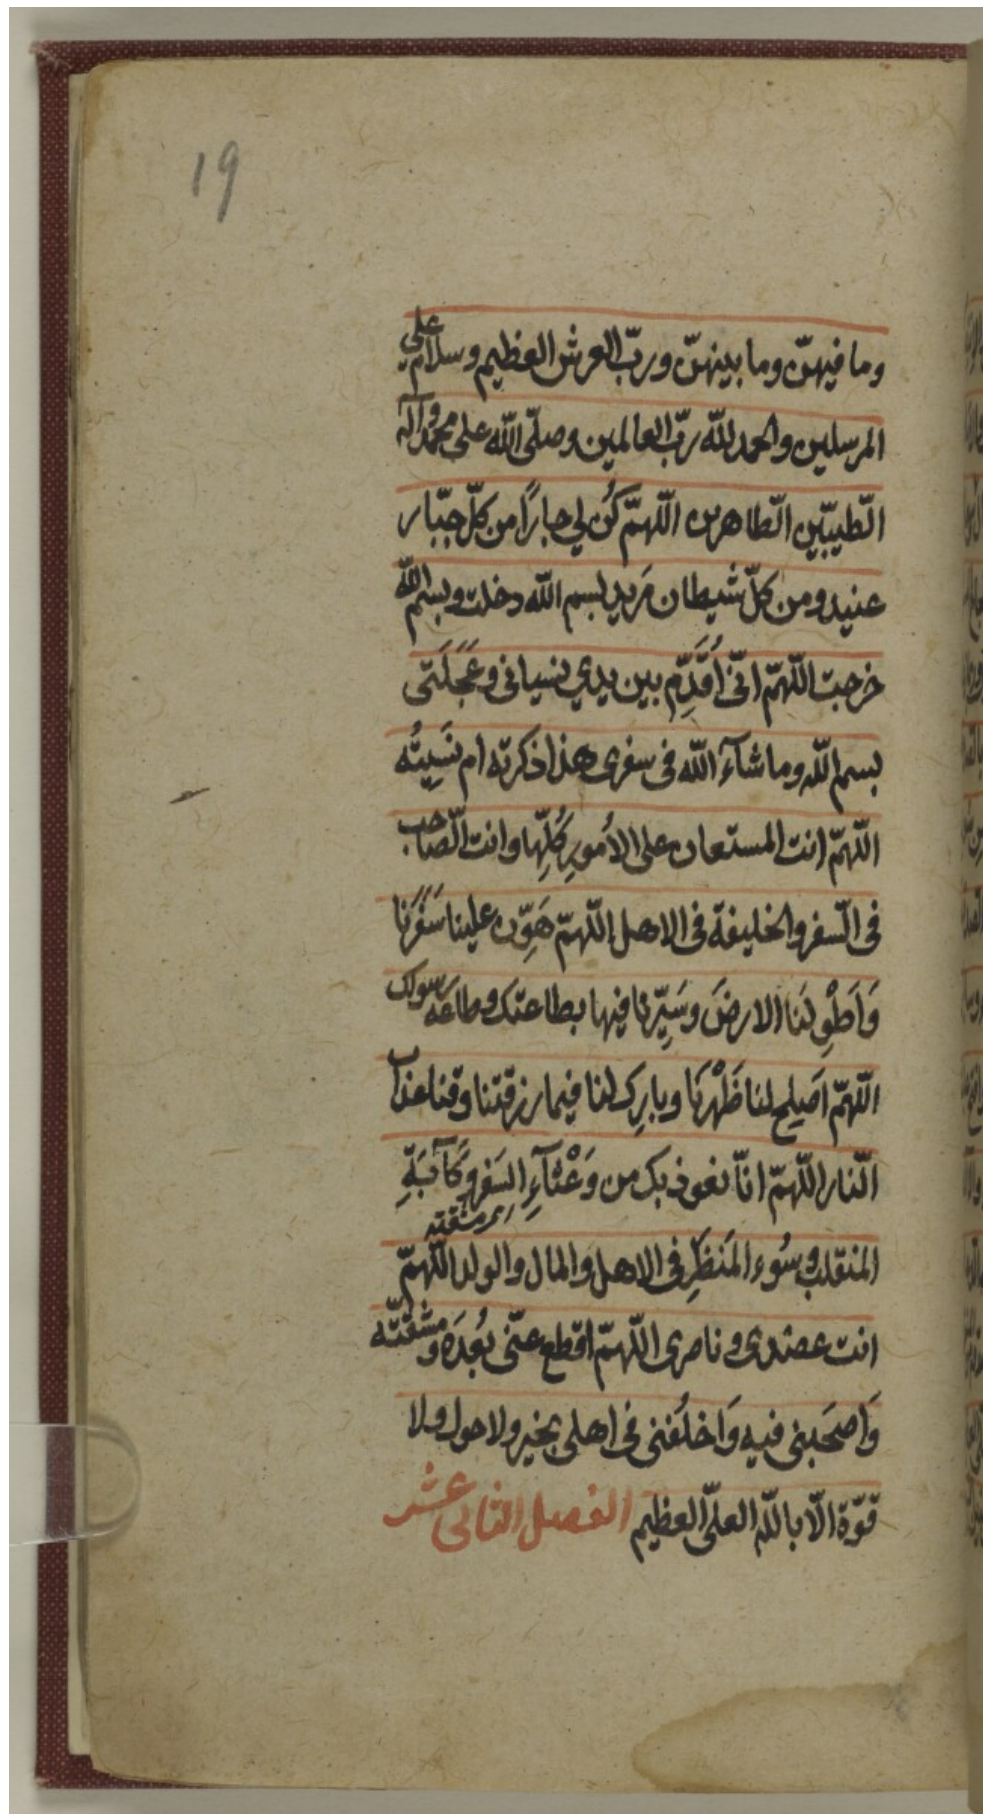 19
وما فيهنّ وما بينهنّ وربّ العرش العظيم وسلام على
المرسلين والحمد للّه ربّ العالمين وصلّى اللّه على محمد وآله
الطّيبّين الطّاهرين اللّهمّ كُن لي جاراً من كلّ جبّار
عنيد ومن كلّ شيطان مَريد بسم اللّه دخلت وبسم اللّه
خرجت اللّهمّ انّى اُقَدِّم بين يدي نسيانى وعَجَلَتى
بسم اللّه وما شآء اللّه فى سفرى هذا ذكرته ام نَسَيتُه
اللّهمّ انت المستعان على الاُمورِ كُلِّها وانت الصّاحب
فى السّفر والخليفة فى الاهل اللّهمّ هَوِّن علينا سَفَرَنا
وَاَطْوِ لَنَا الارضَ وسَيِّرنا فيها بطاعتك وطاعة رسولك
اللّهمّ اَصلِح لنا ظَهْرَنَا وبارِك لنا فيما رزقتنا وقنا عذاب
النّار اللّهمّ انّا نعوذ بك من وَعْثآءِ السَفرِ وَكَآبَةِ
المنقلب وسُوء المَنظَرِ فى الاهل والمال والولد اللّهمّ
انت عضدى وناصرى اللّهمّ اقطع عنّى بُعدَه ومشقّته
وَاصحَبنى فيه وَاخلُفنى فى اهلى بخير ولا حول ولا
قوّة الّا باللّه العلّى العظيم الفصل الثانى عشر